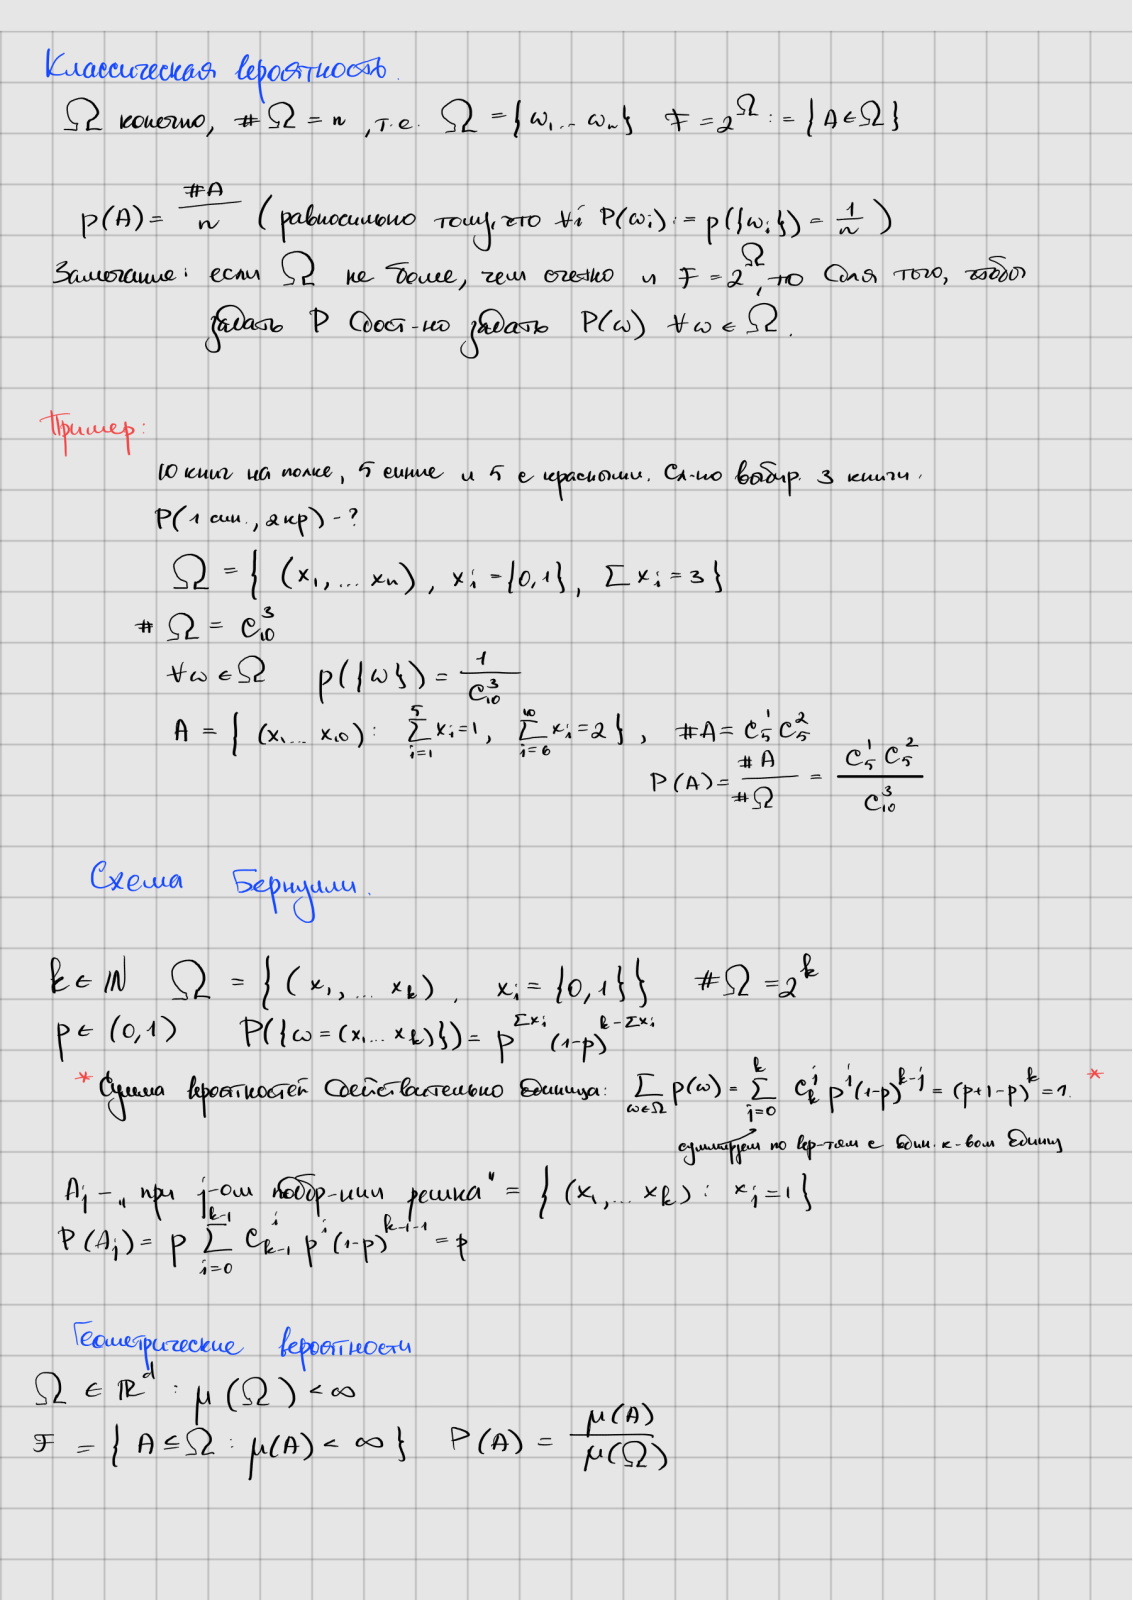 Классическая вероятность.
Ω конечно, #Ω = n, т.е. Ω = {ω₁... ωₙ} F = 2^Ω := {A ∈ Ω}
p(A) = #A/n (равносильно тому, что ∀i P(ωᵢ) := p({ωᵢ}) = 1/n)
Замечание: если Ω не более, чем счетно и F = 2^Ω, то для того, чтобы
задать P дост-но задать P(ω) ∀ω ∈ Ω.
Пример:
10 книг на полке, 5 синие и 5 с красными. Сл-но выбир. 3 книги.
P(1 син., 2 кр) - ?
Ω = { (x₁,... xₙ), xᵢ = {0,1}, Σ xᵢ = 3 }
# Ω = C₁₀³
∀ω ∈ Ω p({ω}) = 1/C₁₀³
A = { (x₁... x₁₀): Σ_{i=1}^{5} xᵢ = 1, Σ_{i=6}^{10} xᵢ = 2 }, #A = C₅¹ C₅²
P(A) = #A/#Ω = C₅¹ C₅² / C₁₀³
Схема Бернулли.
k ∈ ℕ Ω = { (x₁,... x_k), xᵢ = {0,1} } #Ω = 2^k
p ∈ (0,1) P({ω = (x₁... x_k)}) = p^{Σxᵢ} (1-p)^{k-Σxᵢ}
* Сумма вероятностей действительно единица: Σ_{ω∈Ω} p(ω) = Σ_{j=0}^{k} C_k^j p^j (1-p)^{k-j} = (p+1-p)^k = 1. *
суммируем по вер-тям с один. к-вом единиц
A_j - „при j-ом подбр-нии решка" = { (x₁,... x_k): x_j = 1 }
P(A_j) = p Σ_{i=0}^{k-1} C_{k-1}^i p^i (1-p)^{k-i-1} = p
Геометрические вероятности
Ω ∈ ℝ^d : μ(Ω) < ∞
F = { A ⊆ Ω : μ(A) < ∞ } P(A) = μ(A)/μ(Ω)